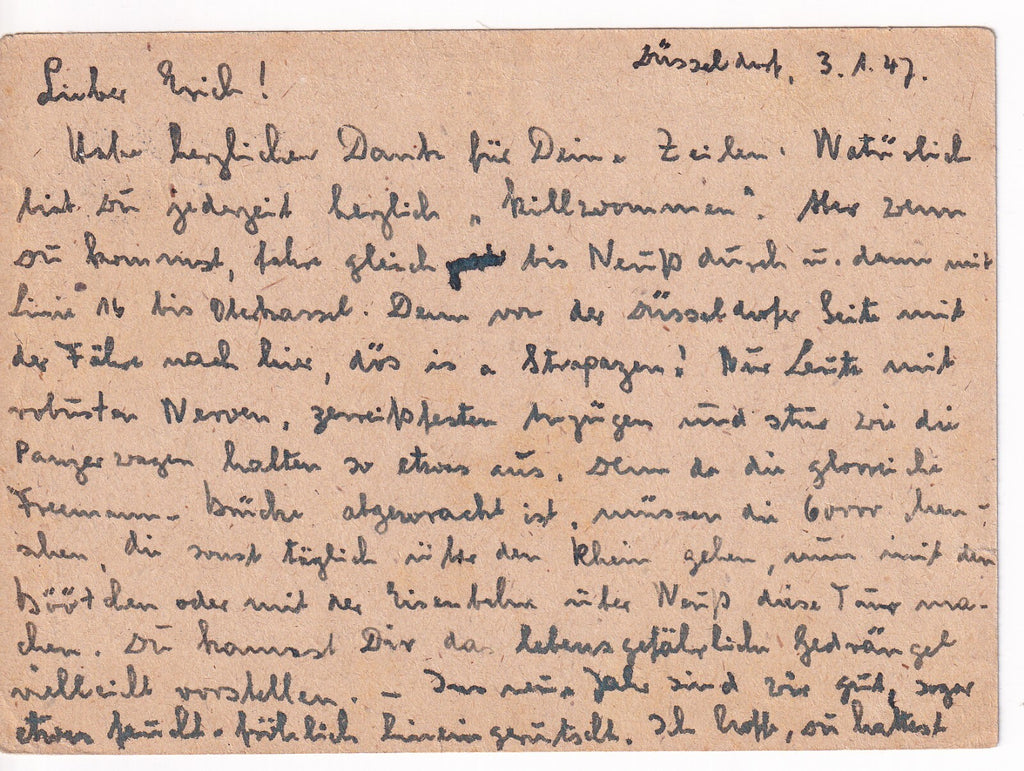 Düsseldorf, 3.1.47.
Lieber Erich!
Habe herzlichen Dank für Deine Zeilen. Natürlich
bist Du jederzeit herzlich „killzwommen“. Aber wenn
Du kommst, fahre gleich bis Neuß durch u. dann mit
Linie 16 bis Oberkassel. Denn von der Düsseldorfer Seite mit
der Fähre nach hier, dös is a Strapazen! Nur Leute mit
robusten Nerven, zerreißfesten Anzügen und stur wie die
Panzerwagen halten so etwas aus. Denn da die glorreiche
Freemann-Brücke abgewrackt ist, müssen die 60000 Men-
schen, die sonst täglich über den Rhein gehen, nun mit den
Böötchen oder mit der Eisenbahn über Neuß diese Tour ma-
chen. Du kannst Dir das lebensgefährliche Gedrängel
vielleicht vorstellen. – Ins neue Jahr sind wir gut, sogar
etwas feucht-fröhlich hineingerutscht. Ich hoffe, Du hattest